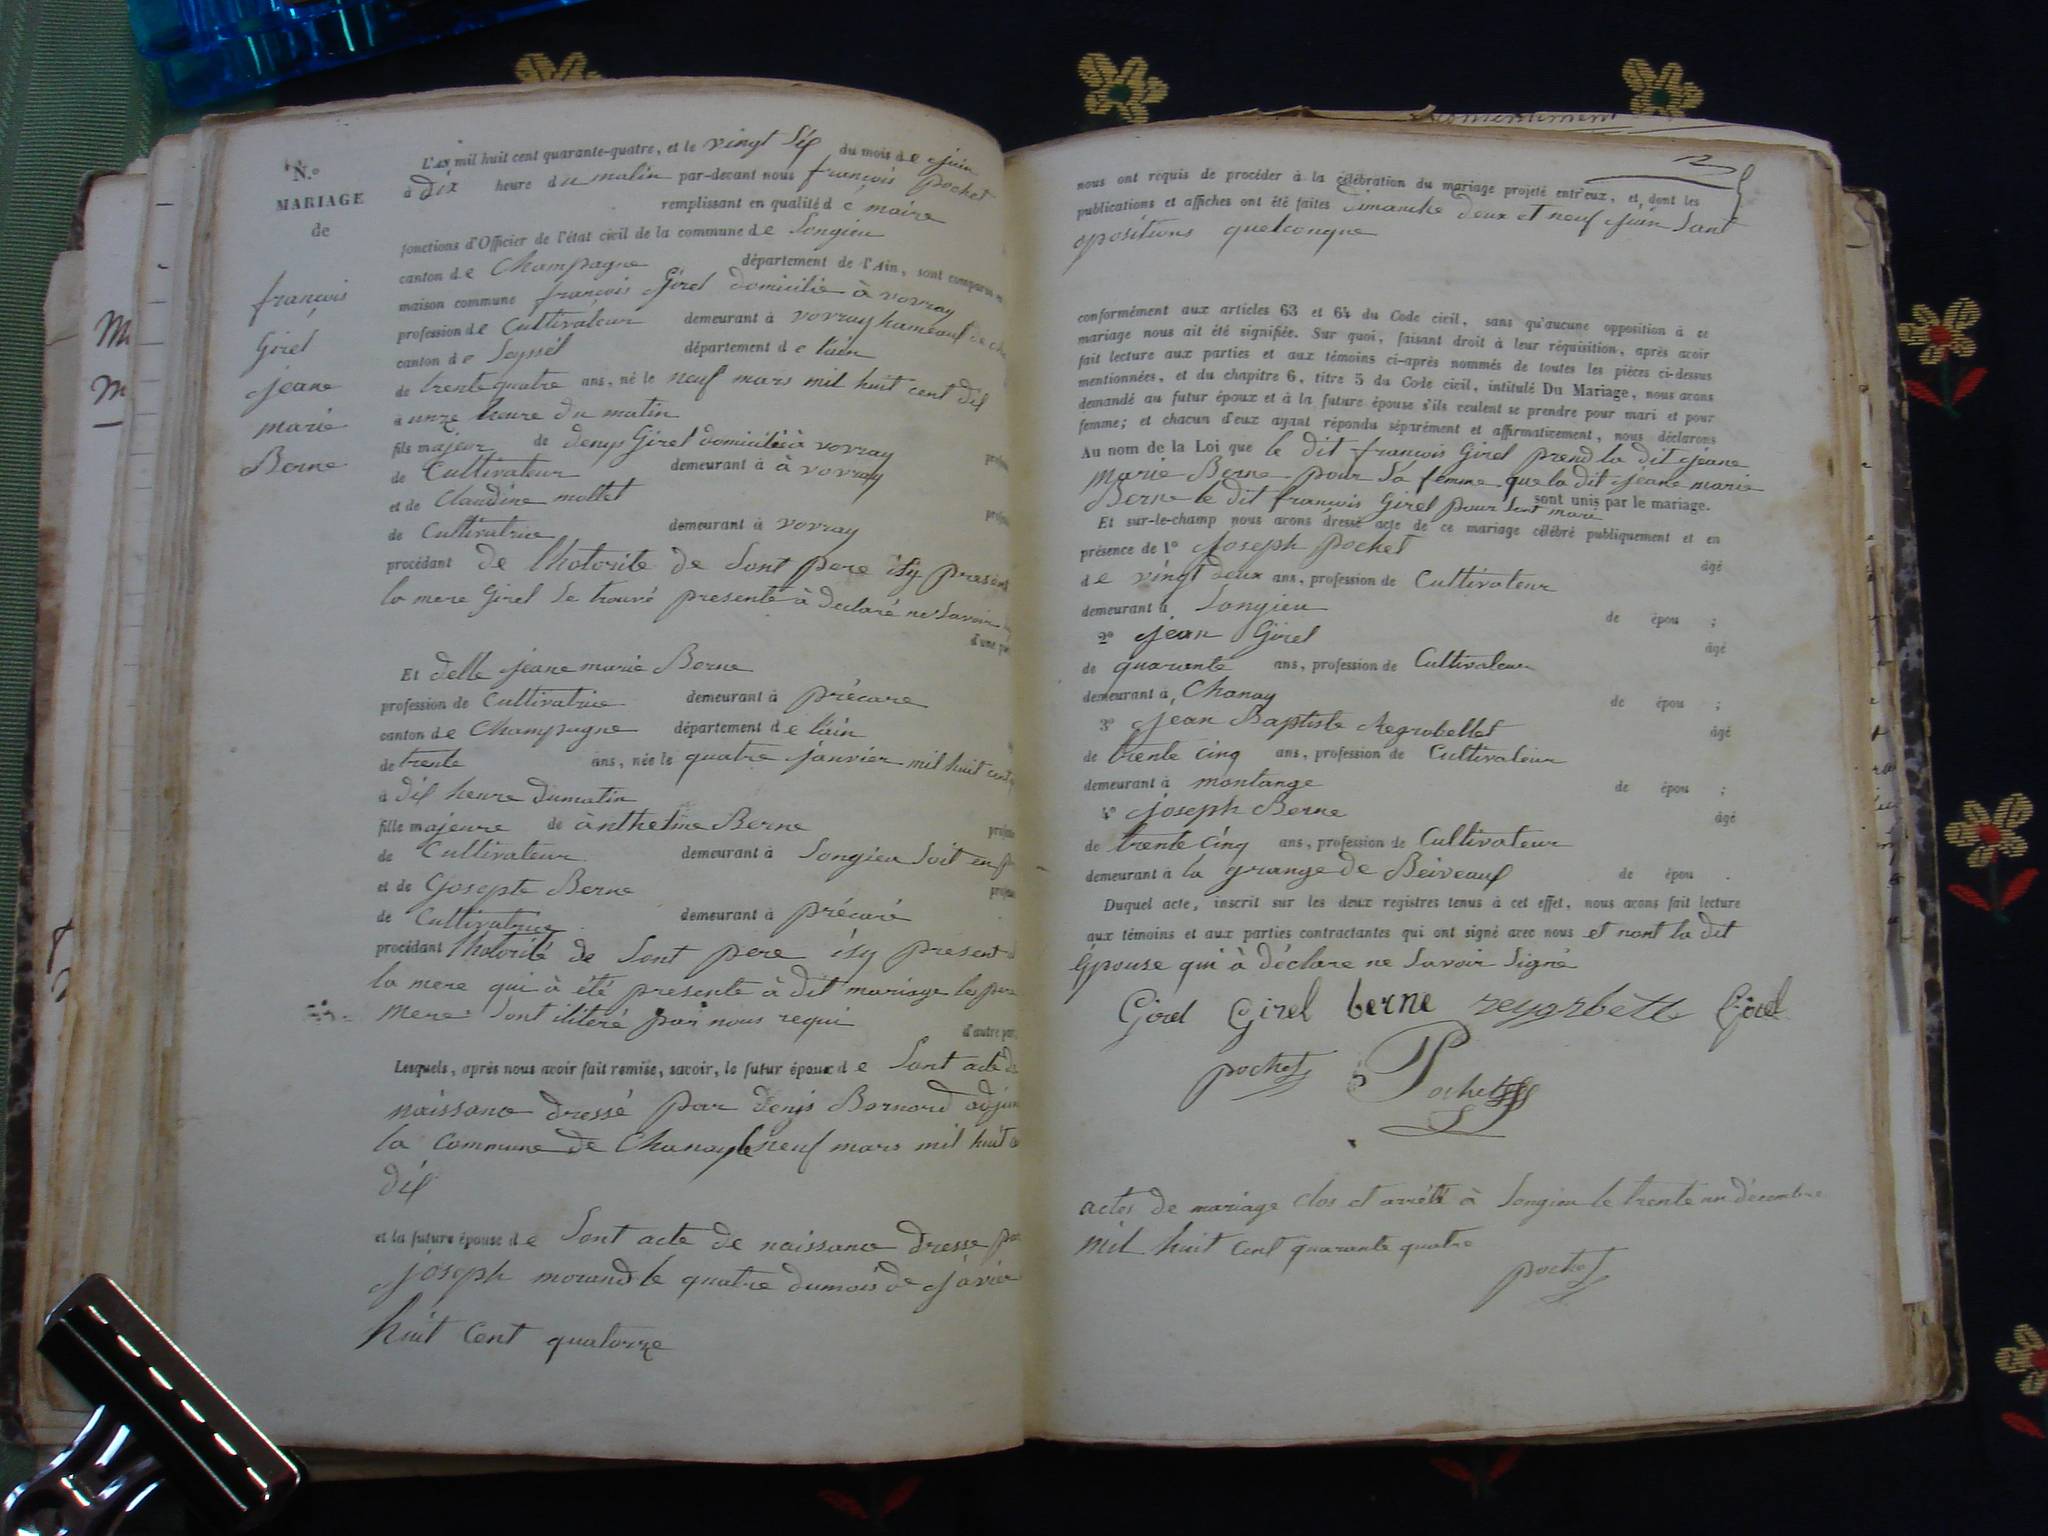 N.º
MARIAGE
de
françois
Girel
jeane
marie
Berne
L'AN mil huit cent quarante-quatre, et le vingt Six du mois de juin
à dix heure du matin par-devant nous françois pochet
remplissant en qualité de maire
fonctions d'Officier de l'état civil de la commune de Songieu
canton de Champagne département de l'Ain, sont comparus en
maison commune françois Girel domicilié à vovray
profession de Cultivateur demeurant à vovray hameaux de
canton de Seyssel département de lain
de trente quatre ans, né le neuf mars mil huit cent dix
à unze heure du matin
fils majeur de denys Girel domiciliéà vovray
de Cultivateur demeurant à à vovray
et de Claudine mollet
de Cultivatrice demeurant à vovray
procédant de lhotorite de Sont pere isy present
la mere Girel Se trouvé presente à declaré ne Savoir
d'une
Et delle jeane marie Berne
profession de Cultivatrice demeurant à précare
canton de Champagne département de lain
de trente ans, née le quatre janvier mil huit cent
à dix heure dumatin
fille majeure de ànthelme Berne
de Cultivateur demeurant à Songieu Soit en
et de Gosepte Berne
de Cultivatrice demeurant à précaré
procédant lhotorité de Sont pere isy present
la mere qui à été presente à dit mariage les pere
mere Sont ilitéré par nous requi
d'autre
Lesquels, après nous avoir fait remise, savoir, le futur époux de Sont acte de
naissance dressé par denis Bornard adjoin
la commune de Chanay le neuf mars mil huit
dix
et la future épouse de Sont acte de naissance dresse par
joseph morand le quatre dumois de javier
huit Cent quatorze
12
nous ont requis de procéder à la célébration du mariage projeté entr'eux, et dont les
publications et affiches ont été faites dimanche deux et neuf juin Sant
opositions quelconque
conformément aux articles 63 et 64 du Code civil, sans qu'aucune opposition à ce
mariage nous ait été signifiée. Sur quoi, faisant droit à leur réquisition, après avoir
fait lecture aux parties et aux témoins ci-après nommés de toutes les pièces ci-dessus
mentionnées, et du chapitre 6, titre 5 du Code civil, intitulé Du Mariage, nous avons
demandé au futur époux et à la future épouse s'ils veulent se prendre pour mari et pour
femme; et chacun d'eux ayant répondu séparément et affirmativement, nous déclarons
Au nom de la Loi que le dit françois Girel prend la dit jeane
Marie Berne pour Sa femme que la dit jeane marie
Berne le dit françois Girel pour Sont mari sont unis par le mariage.
Et sur-le-champ nous avons dressé acte de ce mariage célébré publiquement et en
présence de 1º Joseph Pochet âgé
de vingt deux ans, profession de Cultivateur
demeurant à Songieu de épou ;
2º jean Girel âgé
de quarante ans, profession de Cultivateur
demeurant à Chanay de épou ;
3º jean Baptiste Regrobellet âgé
de trente cinq ans, profession de Cultivateur
demeurant à montange de épou ;
4º joseph Berne âgé
de trente Cinq ans, profession de Cultivateur
demeurant à la grange de Beiveaux de épou .
Duquel acte, inscrit sur les deux registres tenus à cet effet, nous avons fait lecture
aux témoins et aux parties contractantes qui ont signé avec nous et nont la dit
épouse qui à déclare ne Savoir Signé
Girel Girel berne Girel
pochet Pochet
actes de mariage Clos et arrété à Songieu le trente un décembre
mil huit Cent quarante quatre
pochet